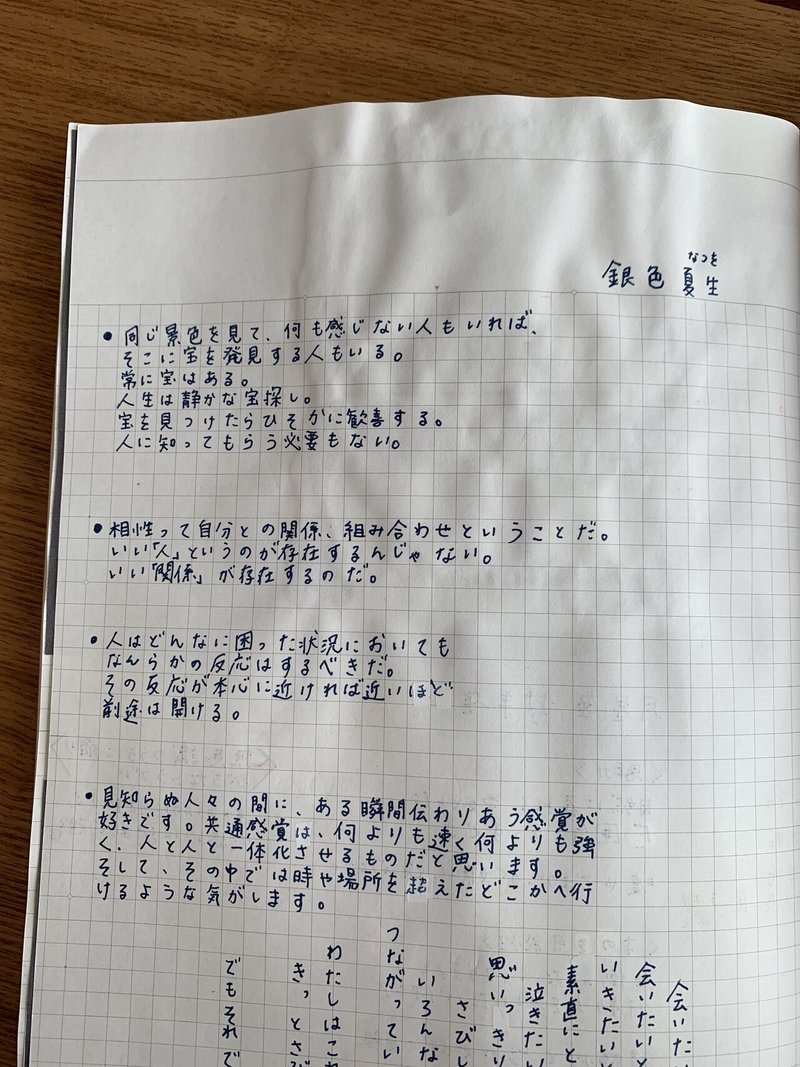 なつを
銀色 夏生
• 同じ景色を見て、何も感じない人もいれば、
そこに宝を発見する人もいる。
常に宝はある。
人生は静かな宝探し。
宝を見つけたらひそかに歓喜する。
人に知ってもらう必要もない。
• 相性って自分との関係、組み合わせということだ。
いい「人」というのが存在するんじゃない。
いい「関係」が存在するのだ。
• 人はどんなに困った状況においても
なんらかの反応はするべきだ。
その反応が本心に近ければ近いほど
前途は開ける。
• 見知らぬ人々の間に、ある瞬間伝わりあう感覚が
好きです。共通感覚は、何よりも速く何よりも強
く、人と人と一体化させるものだと思います。
そして、その中では時や場所を超えたどこかへ行
けるような気がします。
会いた
会いたいと
いきたいと
素直にと
泣きたい
思いっきり
さびし
いろんな
つながってい
わたしはこれ
きっとさび
でもそれで